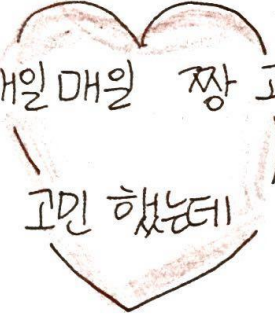 매일매일 짱
고민 했는데